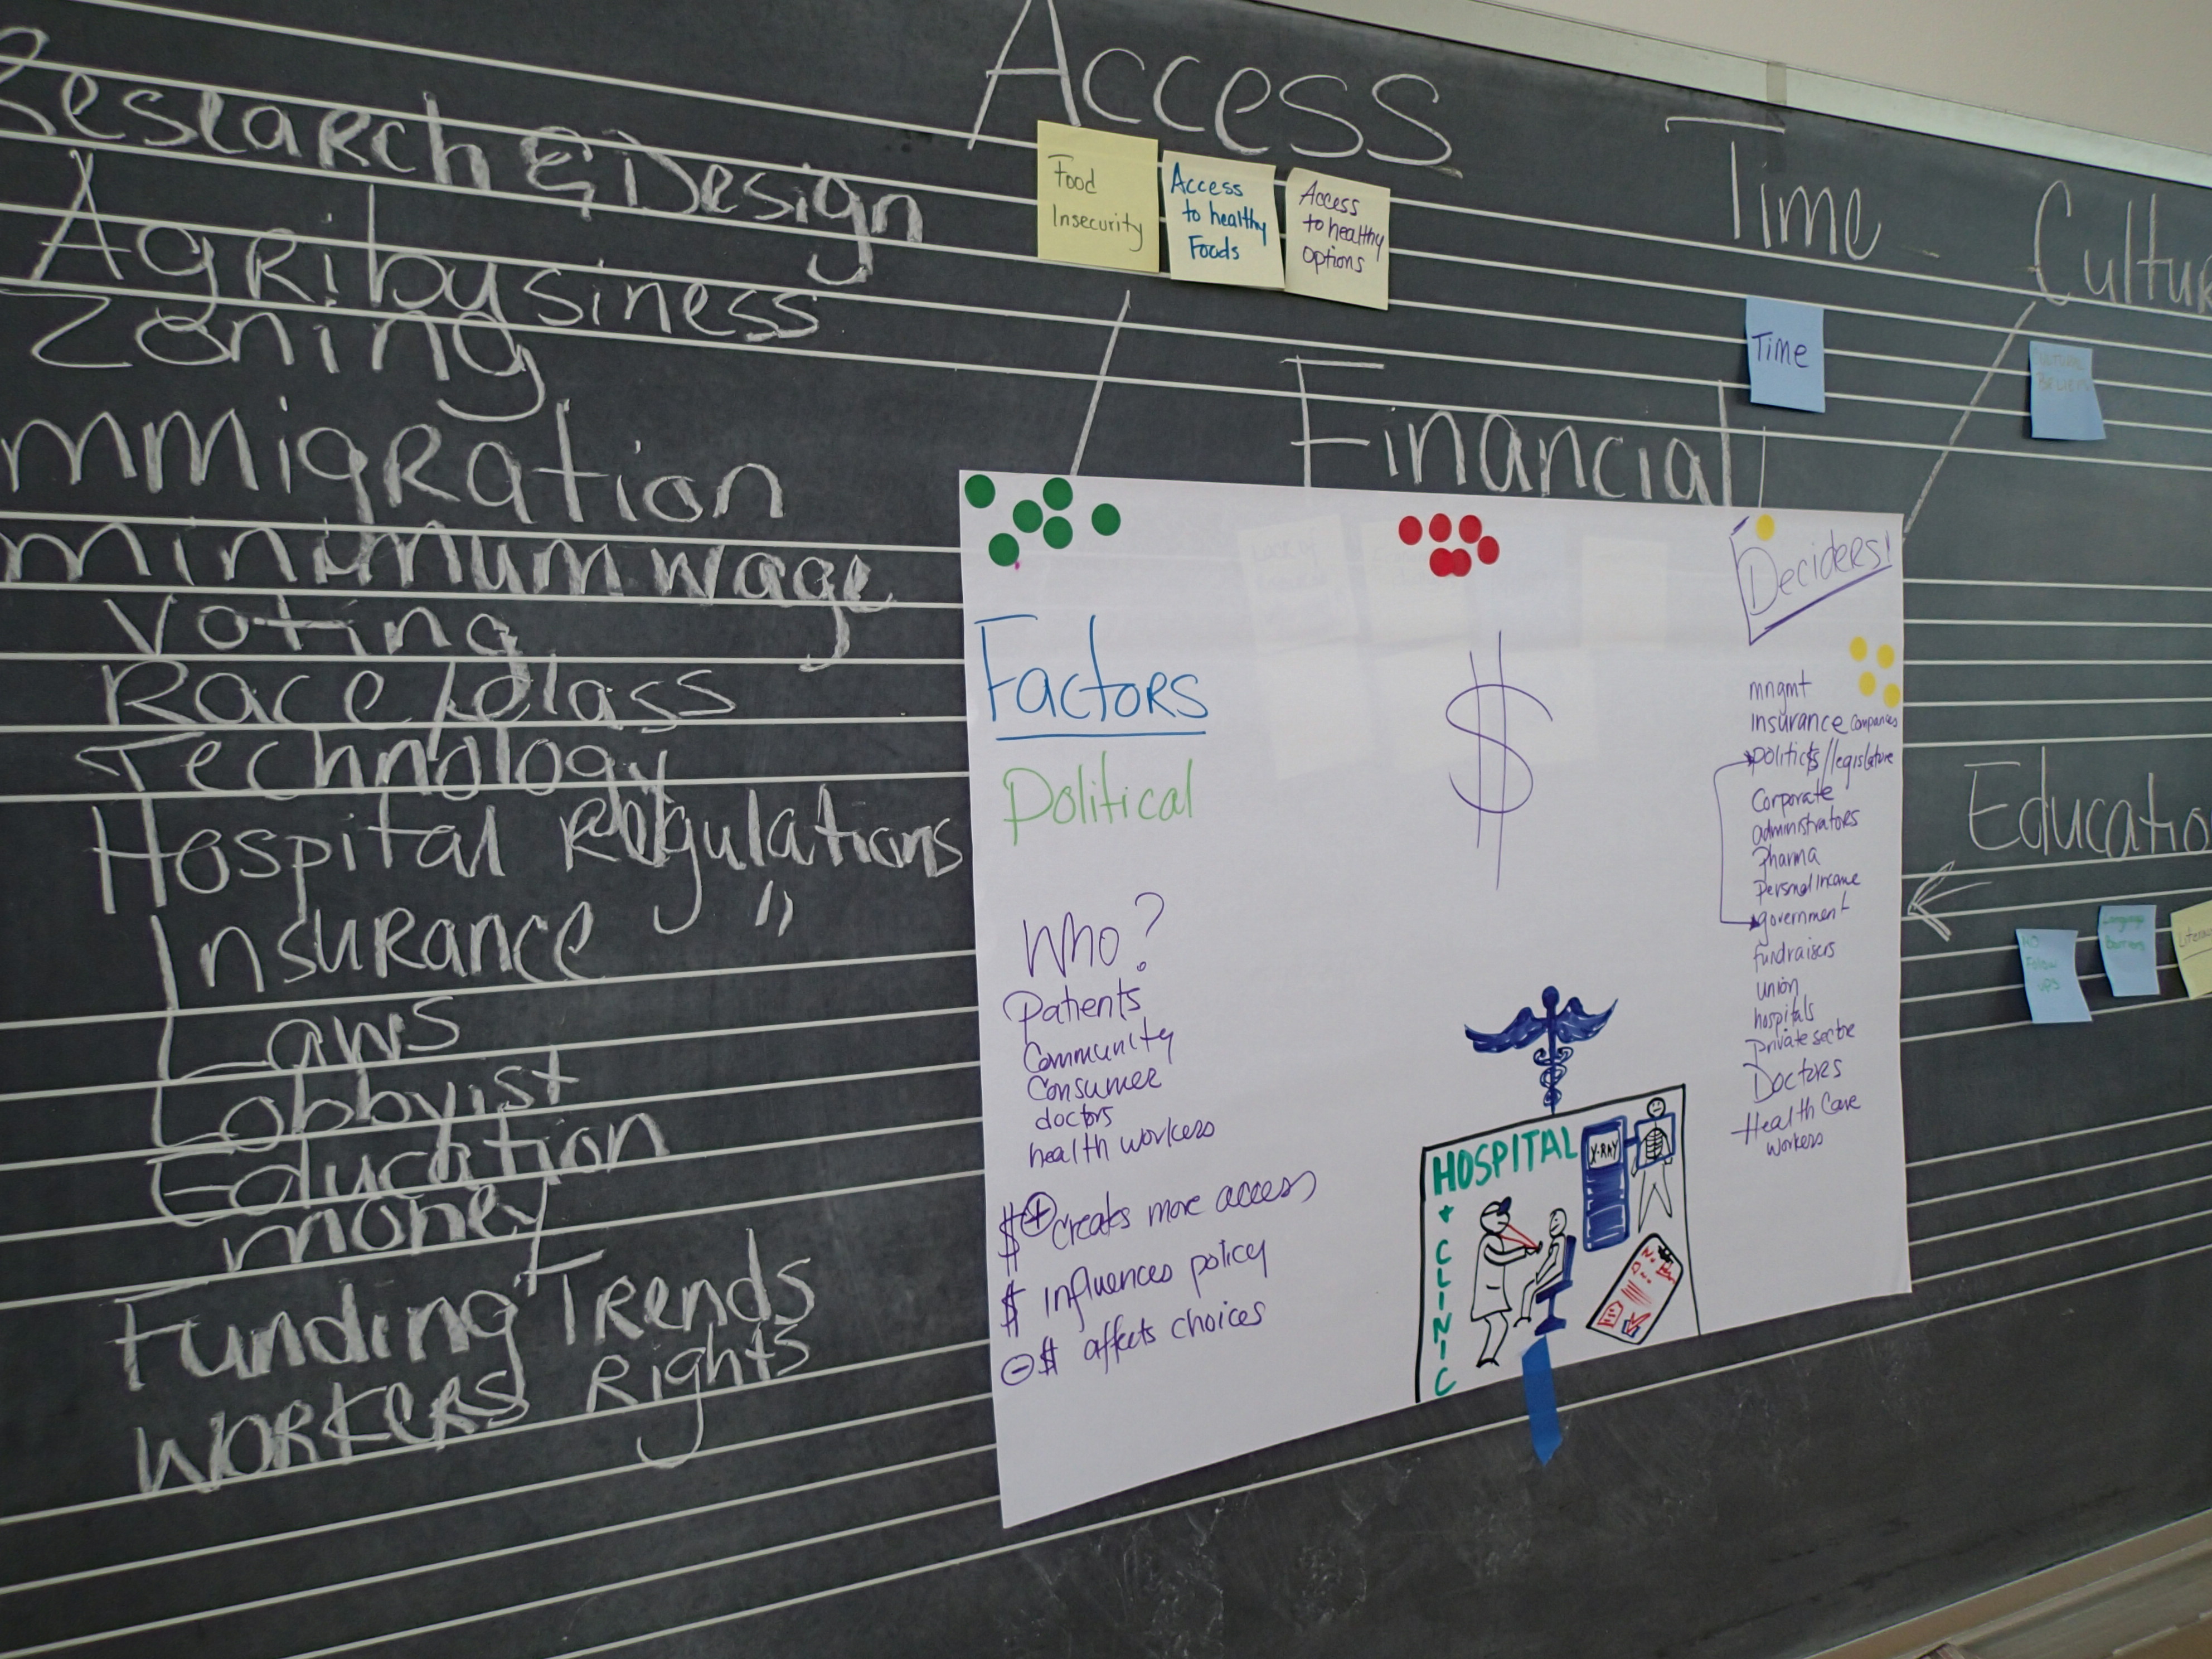 Research & Design
Agribusiness
Zoning
mmigration
minimum wage
Voting
Race/class
Technology
Hospital Regulations
Insurance "
Laws
Lobbyist
Education
money
Funding Trends
WORKERS Rights
Access
Food
Insecurity
Access
to healthy
Foods
Access
to healthy
options
Time
Time
Cultur
Beliefs
Financial
Educatio
No
Follow
ups
Language
Barriers
Factors
Political
Who?
Patients
Community
Consumer
doctors
health workers
$ + creates more access
$ influences policy
- $ affects choices
$
HOSPITAL
+
CLINIC
X-RAY
Deciders!
mngmt
Insurance Companies
politics/legislature
Corporate
administrators
Pharma
Personal income
government
fundraisers
union
hospitals
Private sector
Doctors
Health Care
workers